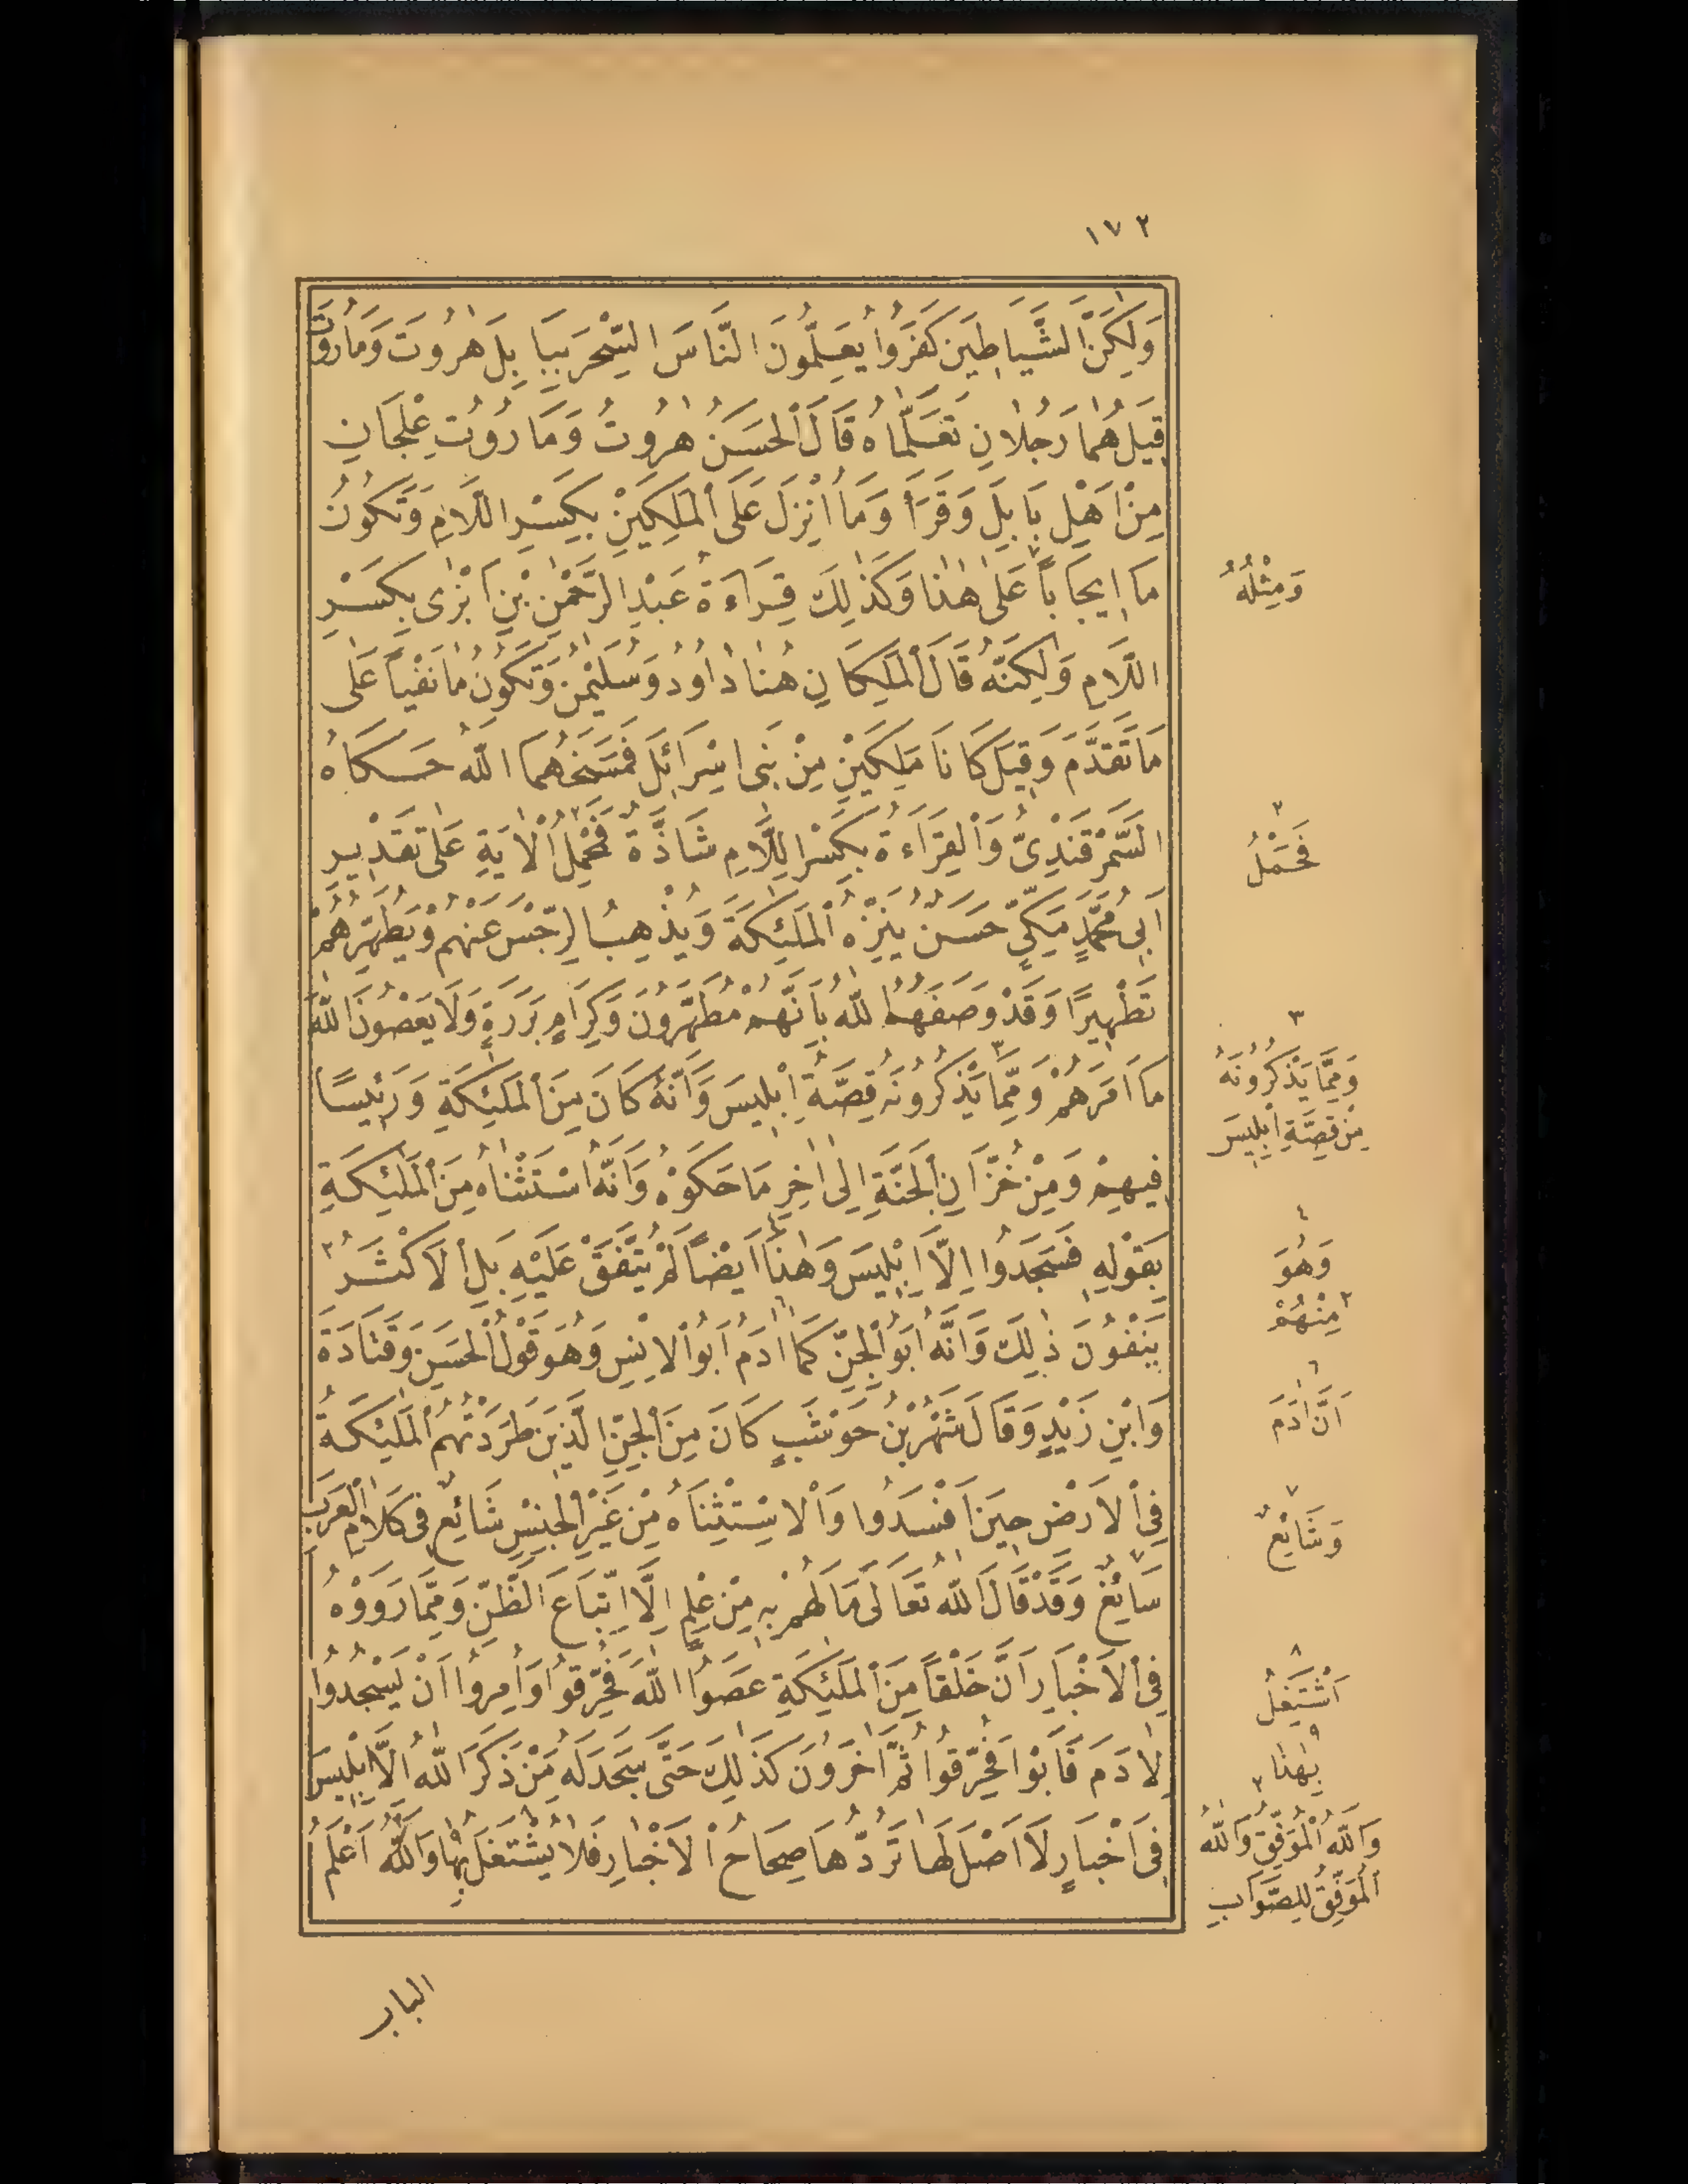 ١٧٣
وَلٰكِنَّ الشَّيَاطِينَ كَفَرُوا يُعَلِّمُونَ النَّاسَ السِّحْرَ بِبَابِلَ هٰرُوتَ وَمَارُوتَ
قِيلَ هُمَا رَجُلَانِ تَعَلَّمَاهُ قَالَ الْحَسَنُ هٰرُوتُ وَمَارُوتُ عِلْجَانِ
مِنْ اَهْلِ بَابِلَ وَقَرَأَ وَمَا اُنْزِلَ عَلَى الْمَلِكَيْنِ بِكَسْرِ اللَّامِ وَتَكُونُ
مَا اِيجَابًا عَلٰى هٰذَا وَكَذٰلِكَ قِرَاءَةُ عَبْدِ الرَّحْمٰنِ بْنِ اَبْزٰى بِكَسْرِ
اللَّامِ وَلٰكِنَّهُ قَالَ الْمَلِكَانِ هُنَا دَاوُدُ وَسُلَيْمٰنُ وَتَكُونُ مَا نَفْيًا عَلٰى
مَا تَقَدَّمَ وَقِيلَ كَانَا مَلِكَيْنِ مِنْ بَنِى اِسْرَائِلَ فَمَسَخَهُمَا اللّٰهُ حَكَاهُ
السَّمَرْقَنْدِىُّ وَالْقِرَاءَةُ بِكَسْرِ اللَّامِ شَاذَّةٌ فَحَمْلُ الْاٰيَةِ عَلٰى تَقْدِيرِ
اَبِى مُحَمَّدٍ مَكِّىٍّ حَسَنٌ يُنَزِّهُ الْمَلٰئِكَةَ وَيُذْهِبُ الرِّجْسَ عَنْهُمْ وَيُطَهِّرُهُمْ
تَطْهِيرًا وَقَدْ وَصَفَهُمُ اللّٰهُ بِاَنَّهُمْ مُطَهَّرُونَ وَكِرَامٍ بَرَرَةٍ وَلَا يَعْصُونَ اللّٰهَ
مَا اَمَرَهُمْ وَمِمَّا يَذْكُرُونَهُ قِصَّةُ اِبْلِيسَ وَاَنَّهُ كَانَ مِنَ الْمَلٰئِكَةِ وَرَئِيسًا
فِيهِمْ وَمِنْ خُزَّانِ الْجَنَّةِ اِلٰى اٰخِرِ مَا حَكَوْهُ وَاَنَّهُ اسْتَثْنَاهُ مِنَ الْمَلٰئِكَةِ
بِقَوْلِهِ فَسَجَدُوا اِلَّا اِبْلِيسَ وَهٰذَا اَيْضًا لَمْ يُتَّفَقْ عَلَيْهِ بَلِ الْاَكْثَرُ
يَنْفُونَ ذٰلِكَ وَاَنَّهُ اَبُو الْجِنِّ كَمَا اٰدَمُ اَبُو الْاِنْسِ وَهُوَ قَوْلُ الْحَسَنِ وَقَتَادَةَ
وَابْنِ زَيْدٍ وَقَالَ شَهْرُ بْنُ حَوْشَبٍ كَانَ مِنَ الْجِنِّ الَّذِينَ طَرَدَتْهُمُ الْمَلٰئِكَةُ
فِى الْاَرْضِ حِينَ اَفْسَدُوا وَالْاِسْتِثْنَاءُ مِنْ غَيْرِ الْجِنْسِ شَائِعٌ فِى كَلَامِ الْعَرَبِ
سَائِغٌ وَقَدْ قَالَ اللّٰهُ تَعَالٰى مَا لَهُمْ بِهِ مِنْ عِلْمٍ اِلَّا اتِّبَاعَ الظَّنِّ وَمِمَّا رَوَوْهُ
فِى الْاَخْبَارِ اَنَّ خَلْقًا مِنَ الْمَلٰئِكَةِ عَصَوُا اللّٰهَ فَحُرِّقُوا وَاُمِرُوا اَنْ يَسْجُدُوا
لِاٰدَمَ فَاَبَوْا فَحُرِّقُوا ثُمَّ اٰخَرُونَ كَذٰلِكَ حَتّٰى سَجَدَ لَهُ مَنْ ذَكَرَ اللّٰهُ اِلَّا اِبْلِيسَ
فِى اَخْبَارٍ لَا اَصْلَ لَهَا تَرُدُّهَا صِحَاحُ الْاَخْبَارِ فَلَا يُشْتَغَلُ بِهَا وَاللّٰهُ اَعْلَمُ
وَمِثْلُهُ
٢
فَحَمْلُ
٣
وَمِمَّا يَذْكُرُونَهُ
مِنْ قِصَّةِ اِبْلِيسَ
٤
وَهُوَ
٢ مِنْهُمْ
٦
اَنَّ اٰدَمَ
٧
وَشَائِعٌ
٨
اَشْتَغِلُ
٩
بِهٰذَا ٣
وَاللّٰهُ الْمُوَفِّقُ وَاللّٰهُ
الْمُوَفِّقُ لِلصَّوَابِ
الباب